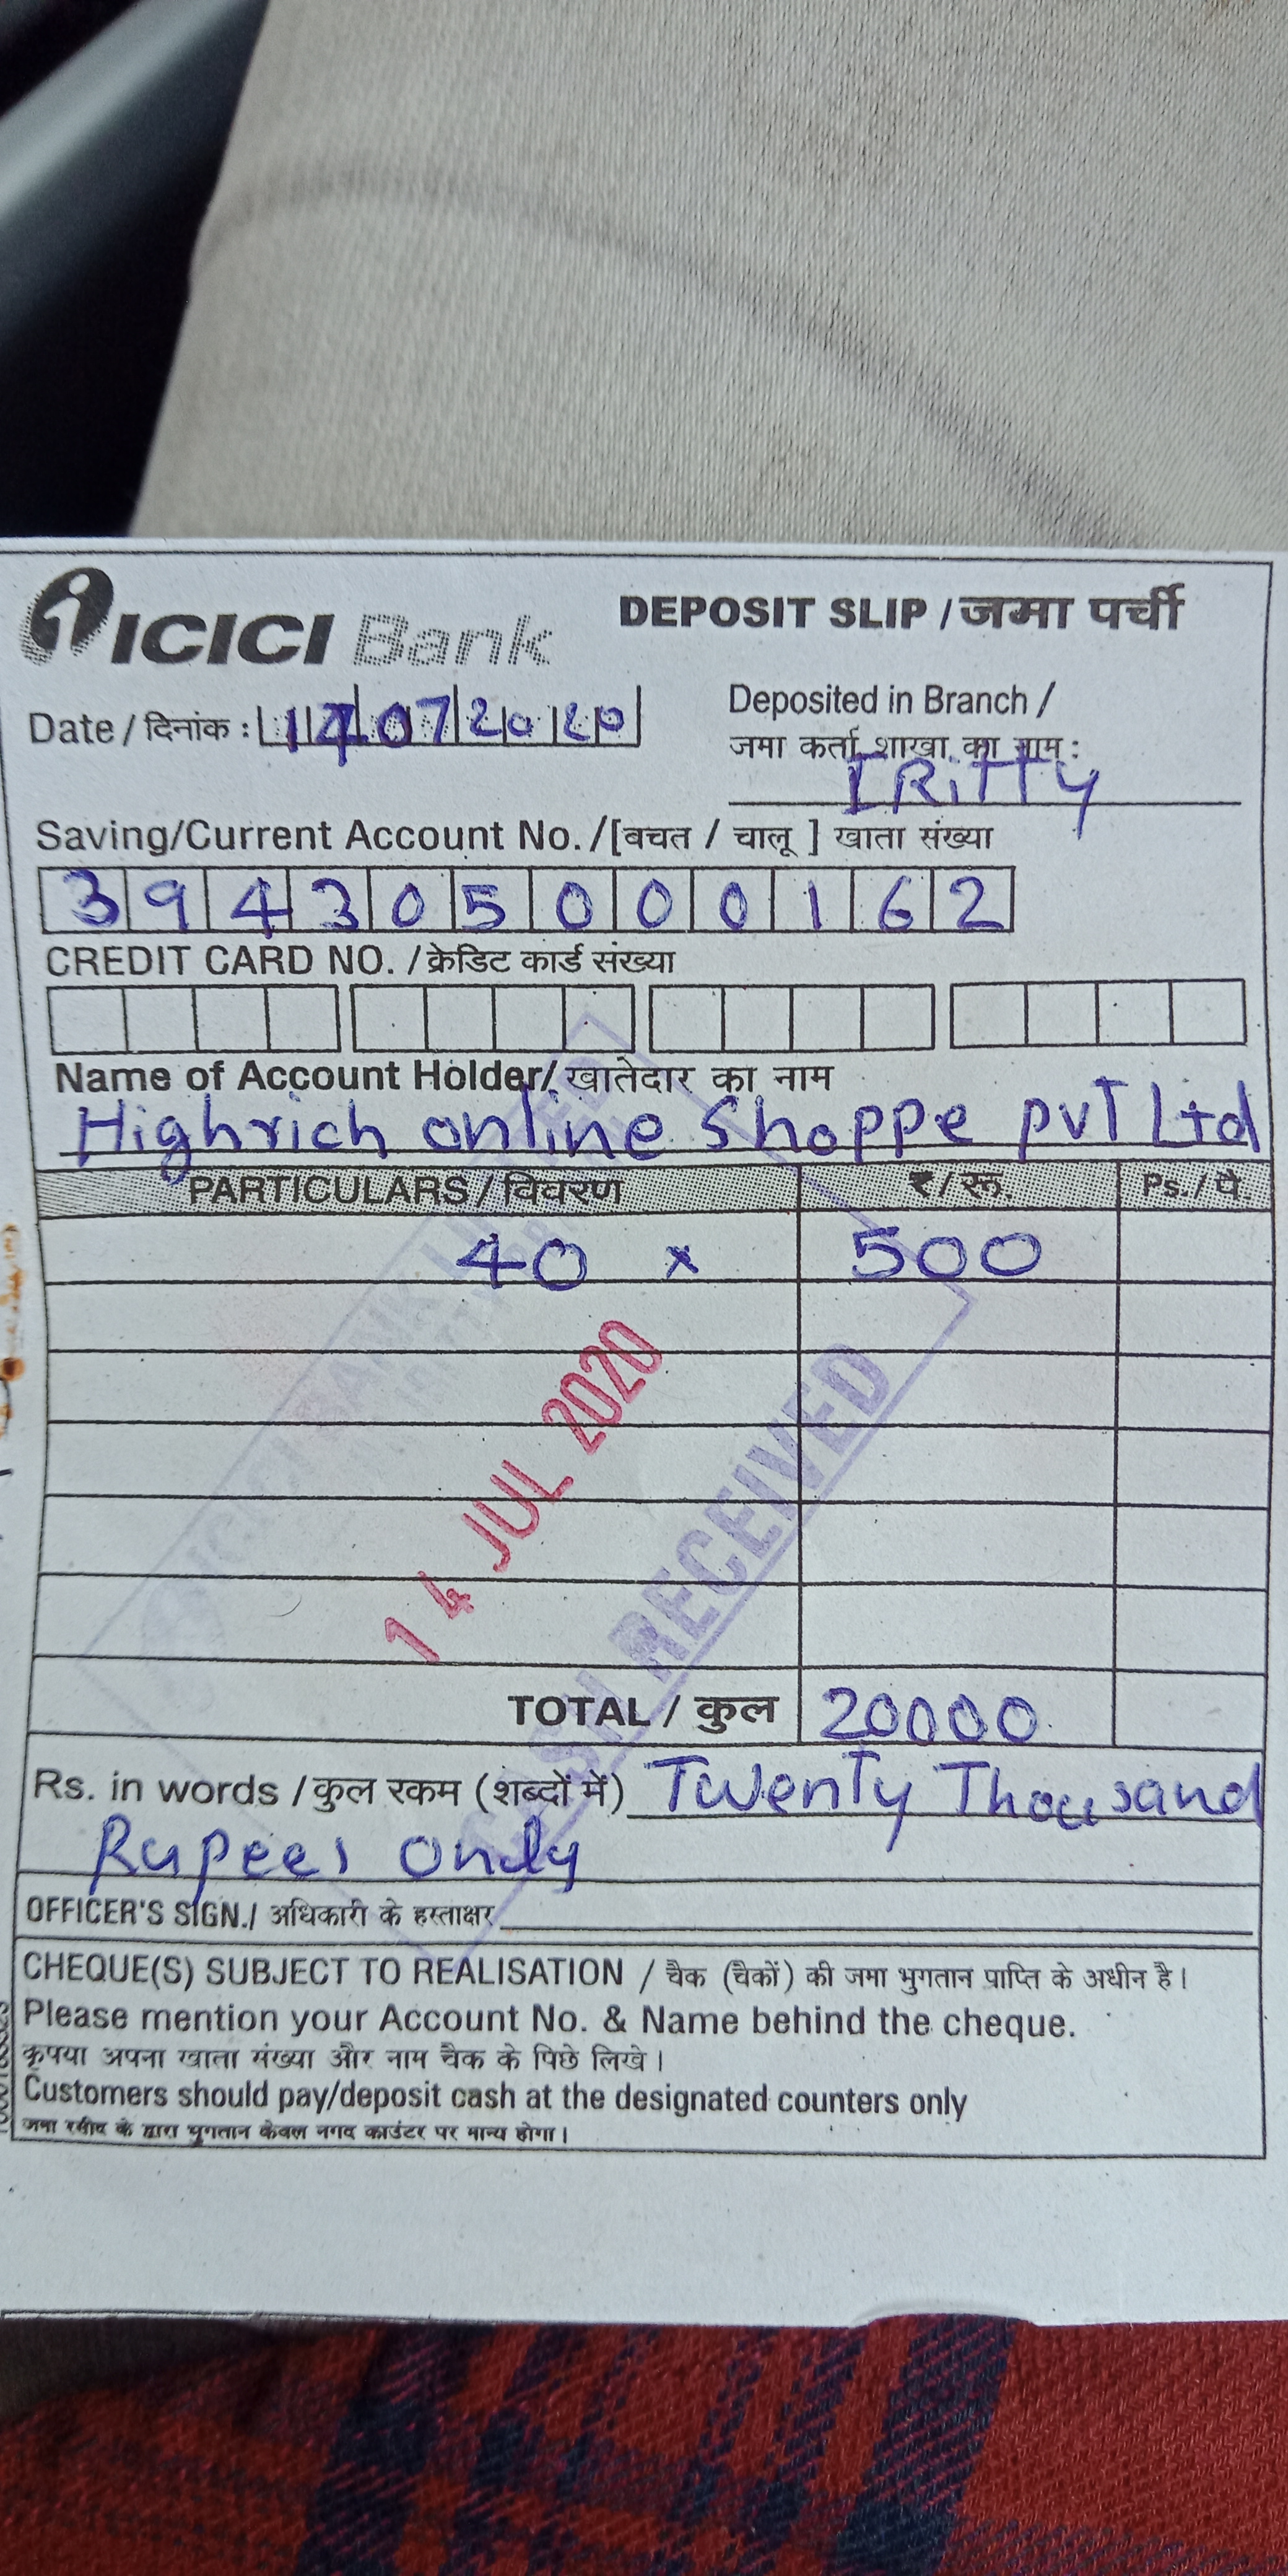 ICICI Bank
DEPOSIT SLIP / जमा पर्ची
Date / दिनांक : 14072020
Deposited in Branch /
जमा कर्ता शाखा का नाम :
IRiTTy
Saving/Current Account No. / [बचत / चालू ] खाता संख्या
394305000162
CREDIT CARD NO. / क्रेडिट कार्ड संख्या
Name of Account Holder/ खातेदार का नाम
Highrich online Shoppe pvT Ltd
PARTICULARS / विवरण ₹/रू. Ps./पै.
40 x 500
14 JUL 2020
CASH RECEIVED
TOTAL / कुल 20000
Rs. in words / कुल रकम (शब्दों में) Twenty Thousand
Rupees only
OFFICER'S SIGN./ अधिकारी के हस्ताक्षर
CHEQUE(S) SUBJECT TO REALISATION / चैक (चैकों) की जमा भुगतान प्राप्ति के अधीन है।
Please mention your Account No. & Name behind the cheque.
कृपया अपना खाता संख्या और नाम चैक के पिछे लिखे।
Customers should pay/deposit cash at the designated counters only
जमा रसीद के द्वारा भुगतान केवल नगद काउंटर पर मान्य होगा।